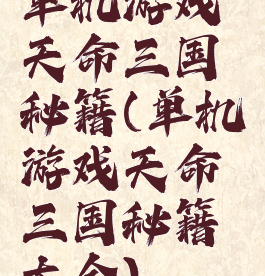 单机游戏
天命三国
秘籍(单机
游戏天命
三国秘籍
大全)